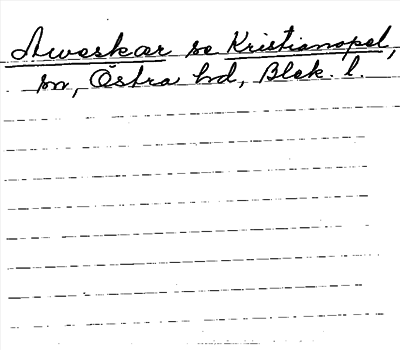 Aweskær se Kristianopel,
sn, Östra hd, Blek. l.